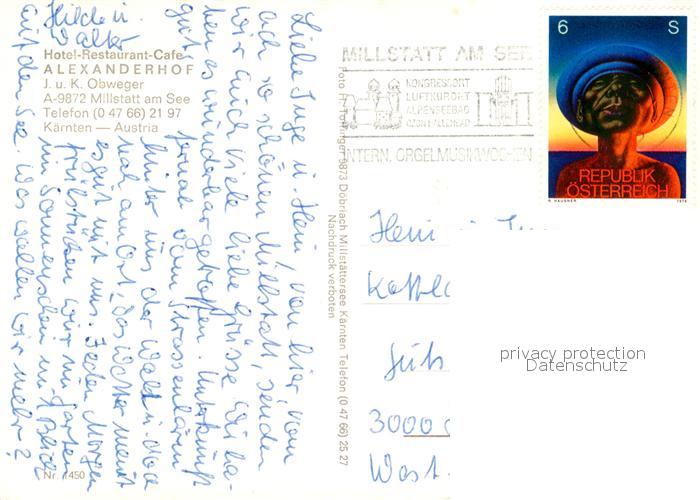 Hotel-Restaurant-Cafe
ALEXANDERHOF
J. u. K. Obweger
A-9872 Millstatt am See
Telefon (0 47 66) 21 97
Kärnten — Austria
Liebe Inge u. Heini von hier, vom
ach so schönen Millstatt, senden
wir euch viele liebe Grüsse. Wir ha-
ben es wunderbar getroffen. Unterkunft
gut, fernab vom Strassenlärm
hinter uns der Wald u. doch
nah am Ort, das Wetter meint
es gut mit uns. Jeden Morgen
frühstücken wir im Garten
im Sonnenschein m. Blick
auf den See. Was wollen wir mehr?
Hilde u.
Walter
Nr. 1450
Döbriach Millstättersee Kärnten Telefon (0 47 66) 25 27
Nachdruck verboten
MILLSTATT AM SEE
KONGRESSORT
LUFTKURORT
ALPENSEEBAD
INTERN. ORGELMUSIKWOCHEN
6 S
REPUBLIK
ÖSTERREICH
R. HAUSNER
Heini
3000
West
privacy protection
Datenschutz